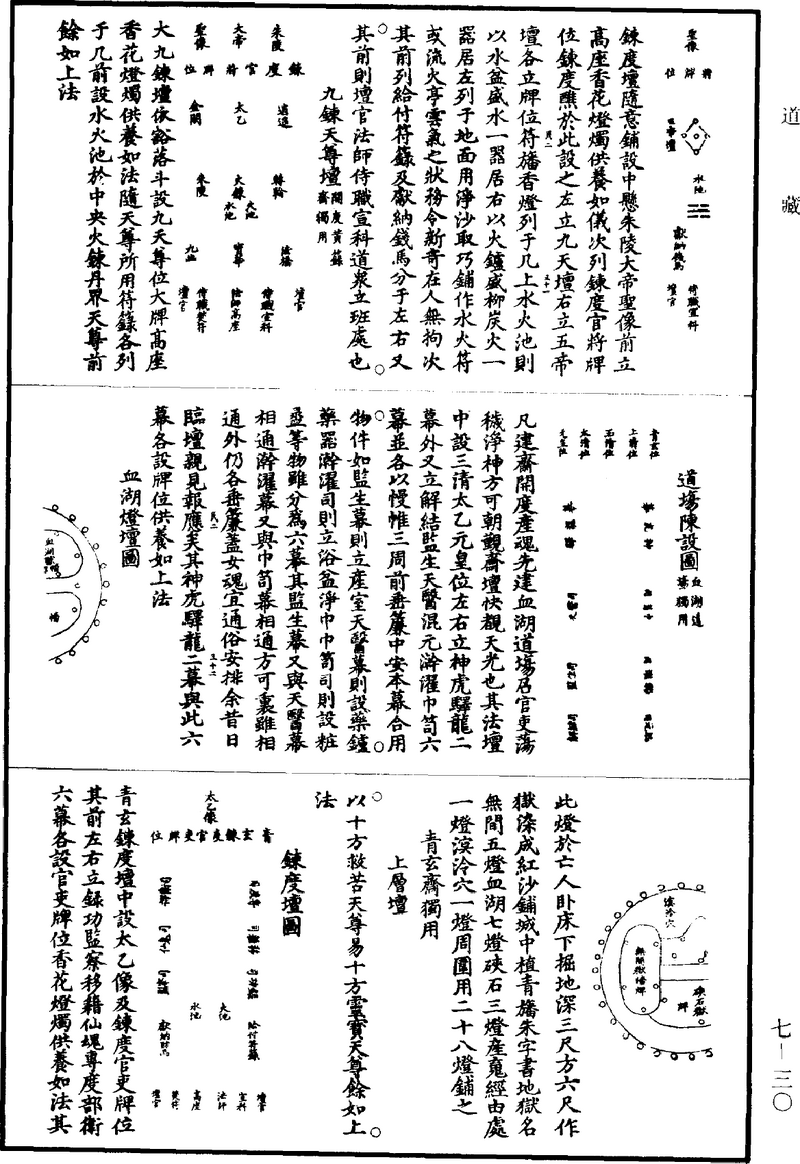 道藏
七—三〇
聖像
將牌位
五帝壇
水池
獻納錢馬
侍職宣科
壇官
鍊度壇隨意鋪設中懸朱陵大帝聖像前立
高座香花燈燭供養如儀次列鍊度官將牌
位鍊度醮於此設之左立九天壇右立五帝
壇各立牌位符旛香燈列于几上水火池則
以水盆盛水一器居右以火鑪盛柳炭火一
器居左列于地面用淨沙取巧鋪作水火符
或流火亭雲氣之狀務令新奇在人無拘次
其前列給付符籙及獻納錢馬分于左右又
其前則壇官法師侍職宣科道衆立班處也
九鍊天尊壇開度黃籙齋獨用
朱陵
大帝
聖像
鍊度官將牌位
逍遙
太乙
金闕
轉輪
火鍊
朱陵
火池
水池
寶華
九幽
壇官
侍職宣科
高座
侍職焚符
壇官
大九鍊壇依谿落斗設九天尊位大牌高座
香花燈燭供養如法隨天尊所用符籙各列
于几前設水火池於中央火鍊丹界天尊前
餘如上法
道場陳設圖血湖道場獨用
青玄位
上清位
玉清位
太清位
元皇位
凡建齋開度產魂先建血湖道場召官吏蕩
穢淨神方可朝覲齋壇快覩天光也其法壇
中設三清太乙元皇位左右立神虎驛龍二
幕外又立解結監生天醫混元澣濯巾笥六
幕並各以幔帷三周前垂簾中安本幕合用
物件如監生幕則立產室天醫幕則設藥鑪
藥器澣濯司則立浴盆淨巾巾笥司則設粧
奩等物雖分爲六幕其監生幕又與天醫幕
相通澣濯幕又與巾笥幕相通方可裏雖相
通外仍各垂簾蓋女魂宜通俗安排余昔日
臨壇親見報應矣其神虎驛龍二幕與此六
幕各設牌位供養如上法
血湖燈壇圖
硤石獄
牌
無間獄幡牌
溟泠穴
此燈於亡人卧床下掘地深三尺方六尺作
獄染成紅沙鋪城中植青旛朱字書地獄名
無間五燈血湖七燈硤石三燈產寃經由處
一燈溟泠穴一燈周圍用二十八燈鋪之
青玄齋獨用
上層壇
以十方救苦天尊易十方靈寶天尊餘如上
法
鍊度壇圖
太乙像
青玄鍊度官吏牌位
火池
水池
給付符籙
獻納財馬
壇官
宣科
法師
高座
焚符
壇官
青玄鍊度壇中設太乙像及鍊度官吏牌位
其前左右立錄功監察移籍仙魂專度部衛
六幕各設官吏牌位香花燈燭供養如法其